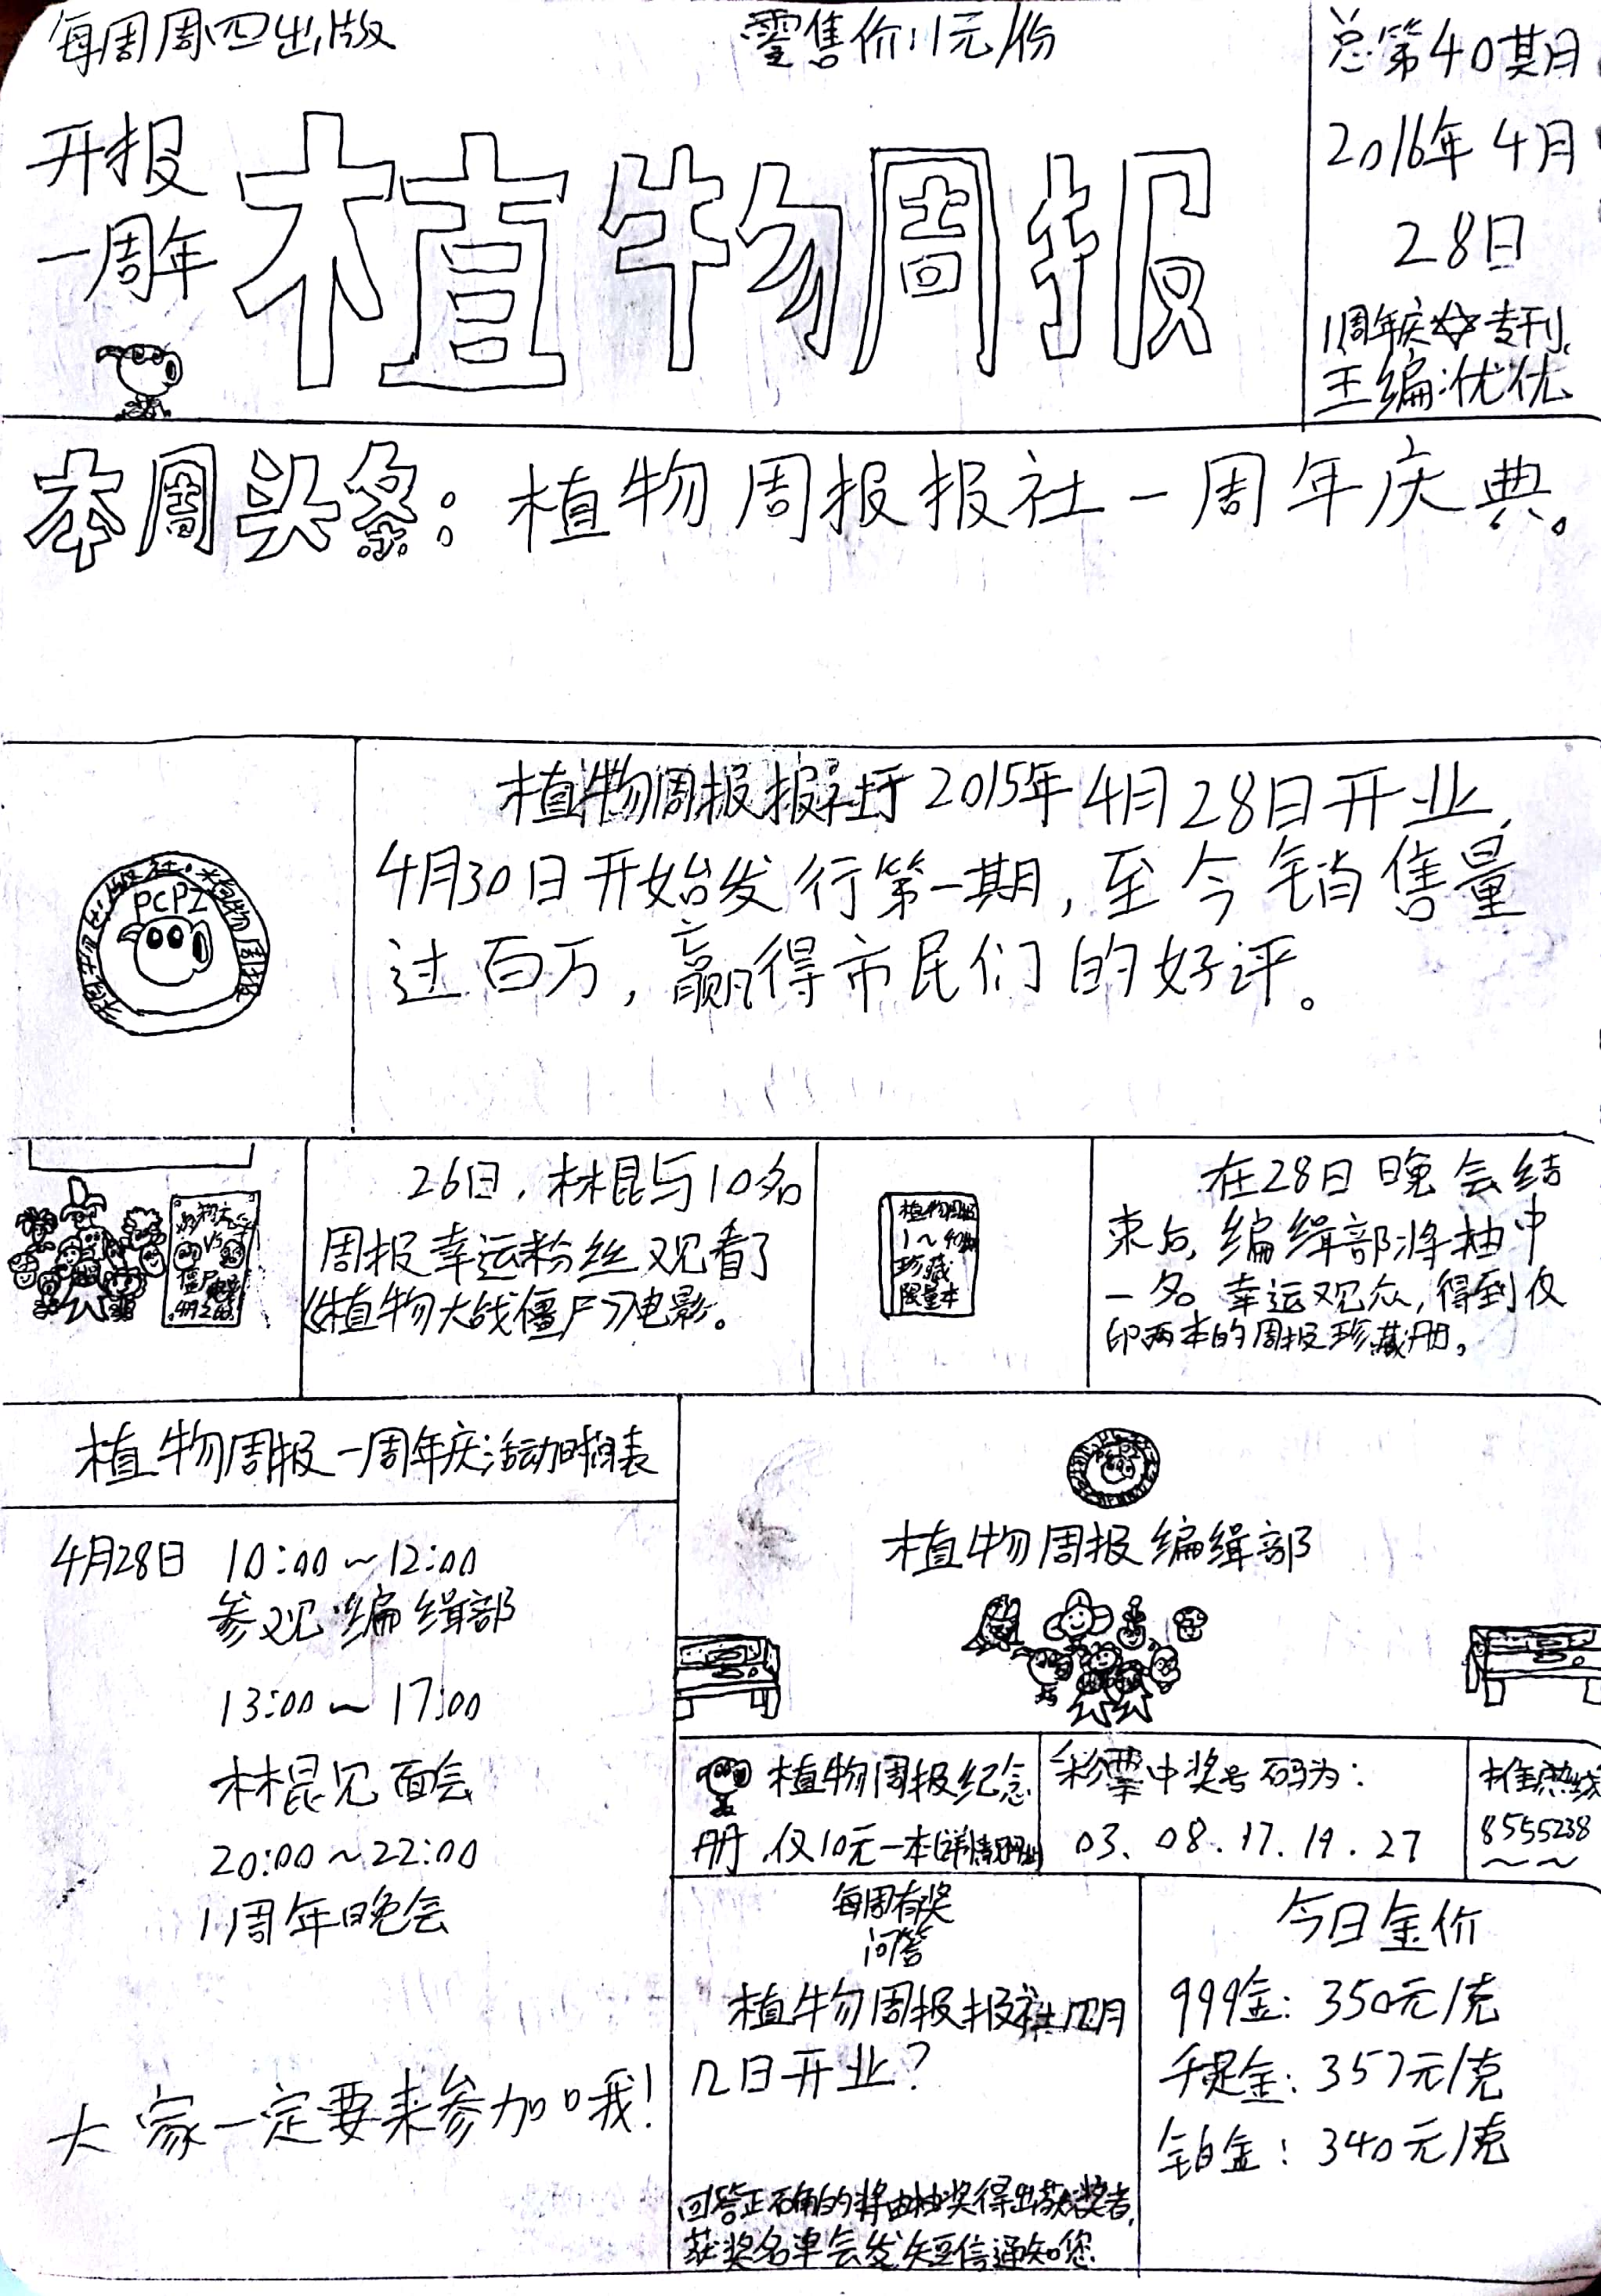 每周周四出版
零售价:1元/份
总第40期
2016年4月
28日
1周年庆☆专刊
主编:优优
开报
一周年
植物周报
本周头条:植物周报报社一周年庆典。
PCPZ
植物周报报社于2015年4月28日开业,
4月30日开始发行第一期,至今销售量
过百万,赢得市民们的好评。
VS
僵尸
26日,林昆与10名
周报幸运粉丝观看了
《植物大战僵尸》电影。
植物周报
1~40期
珍藏
限量本
在28日晚会结
束后,编缉部将抽中
一名幸运观众,得到仅
印两本的周报珍藏册。
植物周报一周年庆活动时间表
4月28日 10:00~12:00
参观编缉部
13:00~17:00
林昆见面会
20:00~22:00
1周年晚会
大家一定要来参加哦!
植物周报编缉部
植物周报纪念
册,仅10元一本
彩票中奖号码为:
03.08.17.19.27
热线
8555238
每周有奖
问答
植物周报报社几月
几日开业?
回答正确的将由抽奖得出获奖者,
获奖名单会发短信通知您
今日金价
999金:350元/克
千足金:357元/克
铂金:340元/克